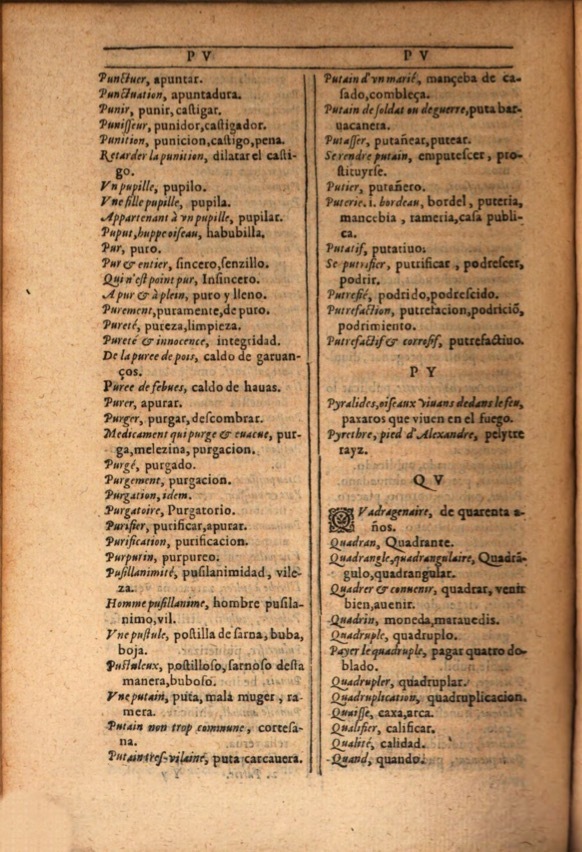 P V
Punctuer, apuntar.
Punctuation, apuntadura.
Punir, punir, castigar.
Punisseur, punidor, castigador.
Punition, punicion, castigo, pena.
Retarder la punition, dilatar el casti-
go.
Vn pupille, pupilo.
Vne fille pupille, pupila.
Appartenant à vn pupille, pupilar.
Puput, huppe oiseau, habubilla.
Pur, puro.
Pur & entier, sincero, senzillo.
Qui n'est point pur, Insincero.
A pur & à plein, puro y lleno.
Purement, puramente, de puro.
Pureté, pureza, limpieza.
Pureté & innocence, integridad.
De la puree de pois, caldo de garuan-
ços.
Puree de febues, caldo de hauas.
Purer, apurar.
Purger, purgar, descombrar.
Medicament qui purge & euacue, pur-
ga, melezina, purgacion.
Purgé, purgado.
Purgement, purgacion.
Purgation, idem.
Purgatoire, Purgatorio.
Purifier, purificar, apurar.
Purification, purificacion.
Purpurin, purpureo.
Pusillanimité, pusilanimidad, vile-
za.
Homme pusillanime, hombre pusila-
nimo, vil.
Vne pustule, postilla de sarna, buba,
boja.
Pustuleux, postilloso, sarnoso desta
manera, buboso.
Vne putain, puta, mala muger, ra-
mera.
Putain non trop commune, cortesa-
na.
Putain tres-vilaine, puta carcauera.
P V
Putain d'vn marié, mançeba de ca-
sado, combleça.
Putain de soldat ou de guerre, puta bar-
uacanera.
Putasser, putañear, putear.
Se rendre putain, emputescer, pro-
stituyrse.
Putier, putañero.
Puterie. i. bordeau, bordel, puteria,
mancebia, rameria, casa publi-
ca.
Putatif, putatiuo.
Se putrifier, putrificar, podrescer,
podrir.
Putrefié, podrido, podrescido.
Putrefaction, putrefacion, podriciõ,
podrimiento.
Putrefactif & corrosif, putrefactiuo.
P Y
Pyralides, oiseaux viuans dedans le feu,
paxaros que viuen en el fuego.
Pyrethre, pied d'Alexandre, pelytre
rayz.
Q V
QVadragenaire, de quarenta a-
ños.
Quadran, Quadrante.
Quadrangle, quadrangulaire, Quadrã-
gulo, quadrangular.
Quadrer & conuenir, quadrar, venir
bien, auenir.
Quadrin, moneda, marauedis.
Quadruple, quadruplo.
Payer le quadruple, pagar quatro do-
blado.
Quadrupler, quadruplar.
Quadruplication, quadruplicacion.
Quaisse, caxa, arca.
Qualifier, calificar.
Qualité, calidad.
Quand, quando.